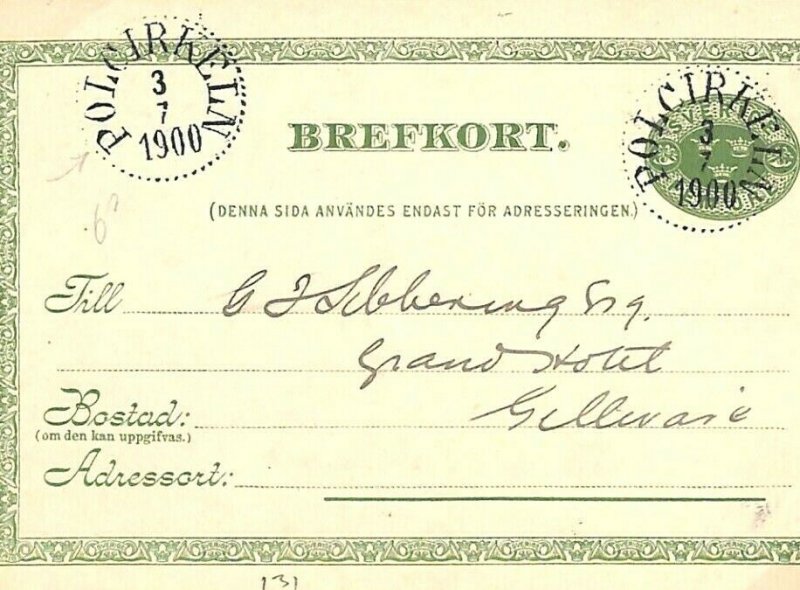 POLCIRKELN
3
7
1900
POLCIRKELN
3
7
1900
SVERIGE
BREFKORT.
(DENNA SIDA ANVÄNDES ENDAST FÖR ADRESSERINGEN.)
Till G Esq.
Grand Hotel
Bostad: Gellivare
(om den kan uppgifvas.)
Adressort:
131